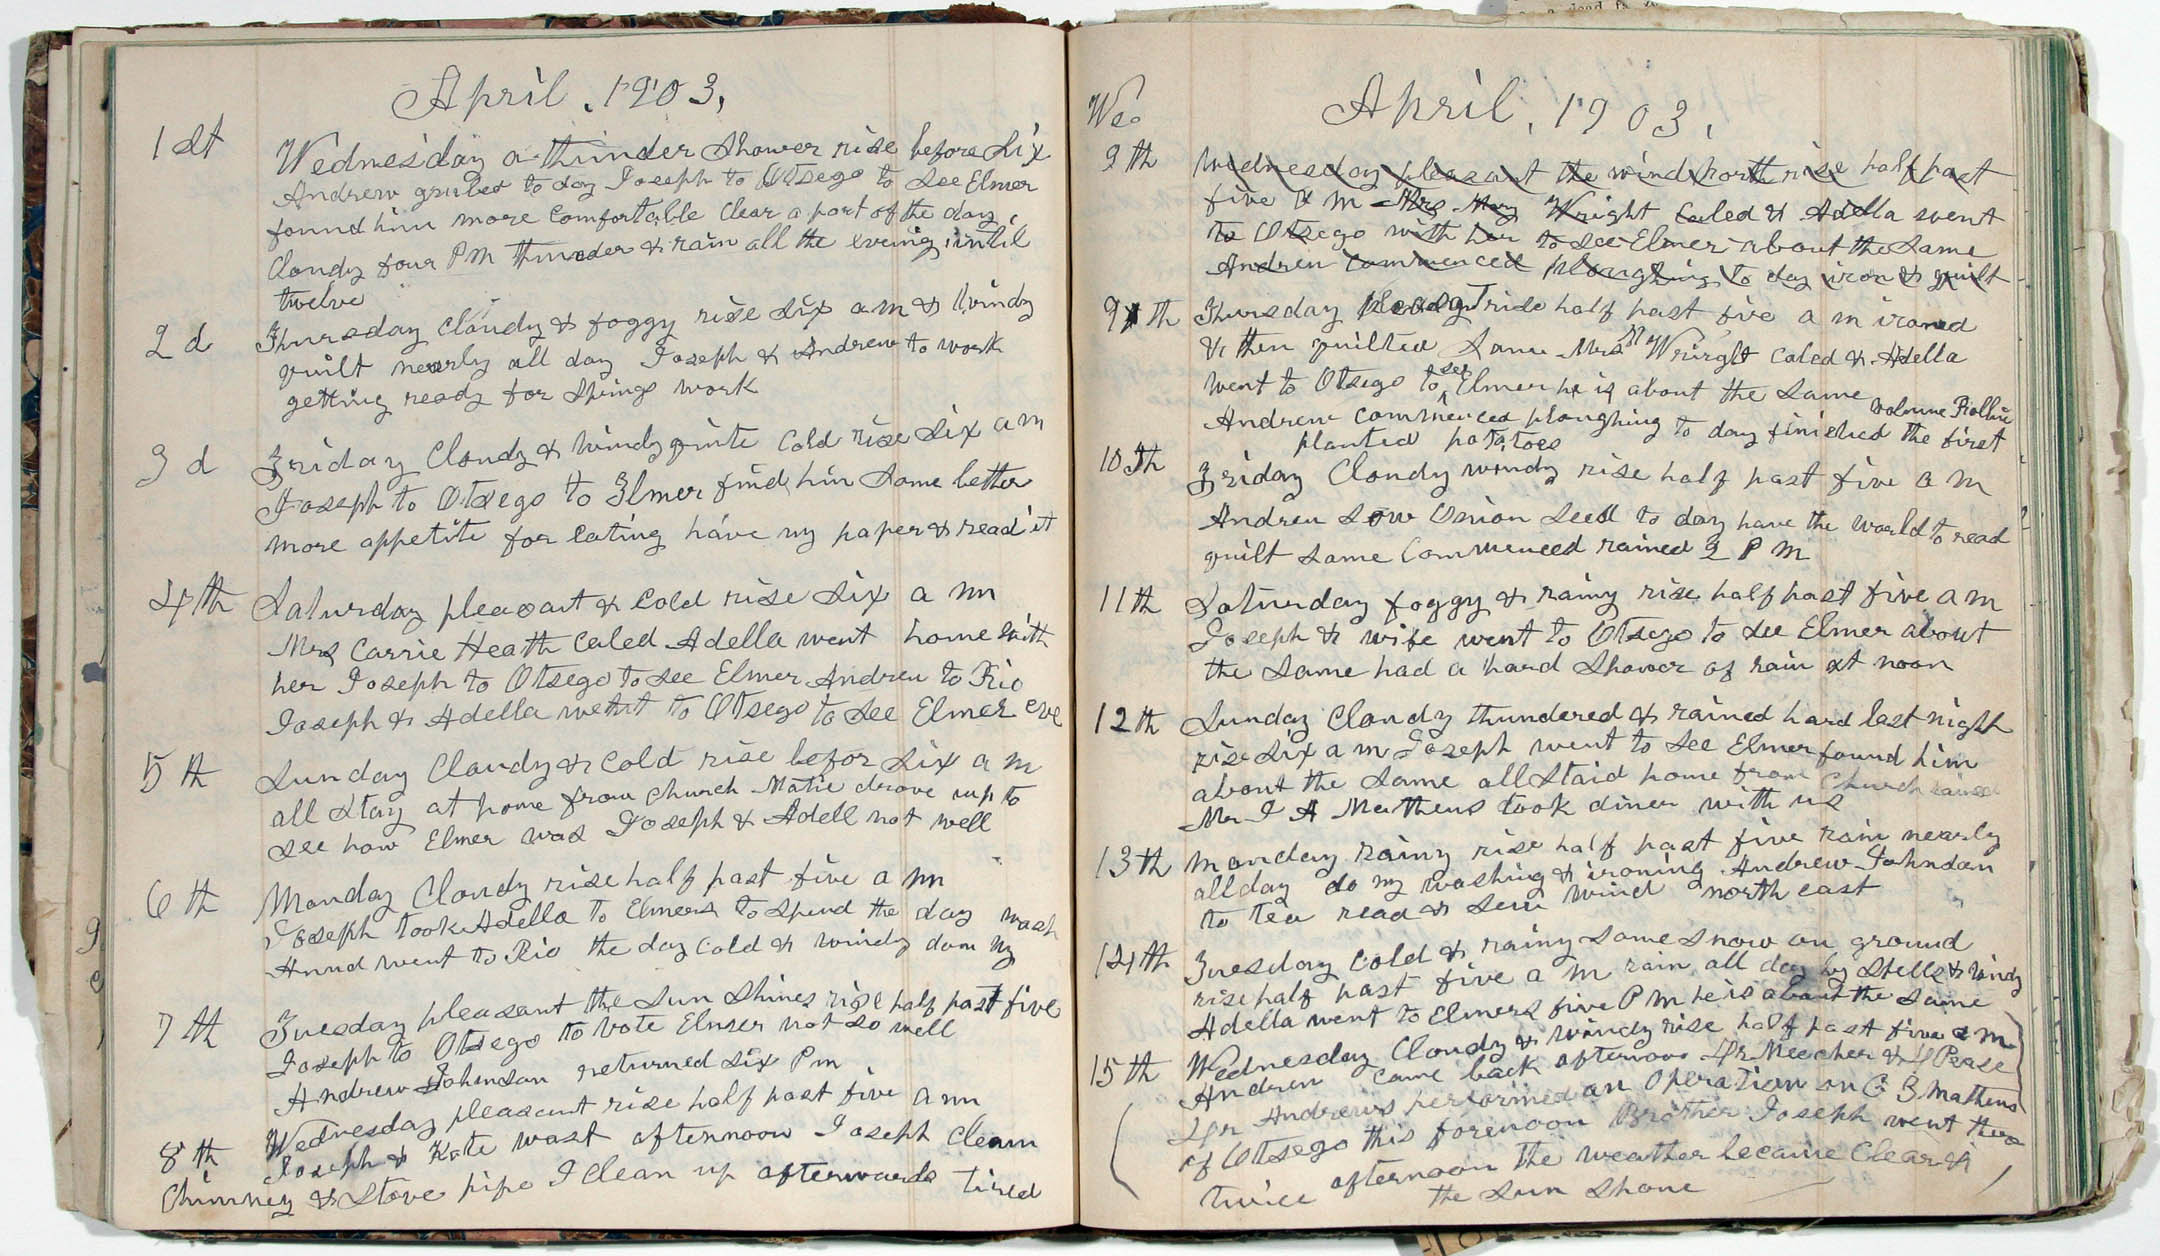 April, 1903,
1st Wednesday a thunder shower rise before six
Andrew grubed to day Joseph to Otsego to see Elmer
found him more comfortable Clear a part of the day
Cloudy four PM thunder & rain all the evening until
twelve
2d Thursday Cloudy & foggy rise six a m & windy
quilt nearly all day Joseph & Andrew to work
getting ready for Springs work
3d Friday Cloudy & windy quite Cold rise six a m
Joseph to Otsego to Elmer find him some better
more appetite for eating have my paper & read it
4th Saturday pleasant & Cold rise six a m
Mrs Carrie Heath Caled Adella went home with
her Joseph to Otsego to see Elmer Andrew to Rio
Joseph & Adella went to Otsego to see Elmer eve
5th Sunday Cloudy & Cold rise befor six a m
all stay at home from Church Matie drove up to
see how Elmer was Joseph & Adell not well
6th Monday Cloudy rise half past five a m
Joseph took Adella to Elmers to spend the day wash
went to Rio the day Cold & windy don my
7th Tuesday pleasant the sun shines rise half past five
Joseph to Otsego to vote Elmer not so well
Andrew Johnson returned six P m
8th Wednesday pleasant rise half past five a m
Joseph & Kate wast afternoon Joseph Clean
Chimney & stove pipe I clean up afterwards tired
We
April, 1903,
9th Wednesday pleasant the wind North rise half past
five A M Mrs Mary Wright Caled & Adella went
to Otsego with her to see Elmer about the same
Andrew Commenced ploughing to day iron & quilt
9th Thursday pleasant rise half past five a m ironed
& then quilted some Mrs M Wright Caled & Adella
went to Otsego to see Elmer he is about the same
Andrew Commenced ploughing to day finished the first volume Rollin
planted potatoes
10th Friday Cloudy windy rise half past five a m
Andrew sow Onion seed to day have the world to read
quilt some Commenced rained 2 P M
11th Saturday foggy & rainy rise half past five a m
Joseph & wife went to Otsego to see Elmer about
the same had a hard shower of rain at noon
12th Sunday Cloudy thundered & rained hard last night
rise six a m Joseph went to see Elmer found him
about the same all staid home from Church rained
Mr J A Mathews took diner with us
13th monday rainy rise half past five rain nearly
all day do my washing & ironing Andrew Johnson
to tea read & sew wind north east
14th Tuesday Cold & rainy some snow on ground
rise half past five a m rain all day by spells & windy
Adella went to Elmers five P M he is about the same
15th Wednesday Cloudy & windy rise half past five a m
Andrew came back afternoon Dr Meecher & D Pease
Dr Andrews performed an Operation on C. B. Mathews
of Otsego this forenoon Brother Joseph went there
twice afternoon the weather became Clear &
the sun shone